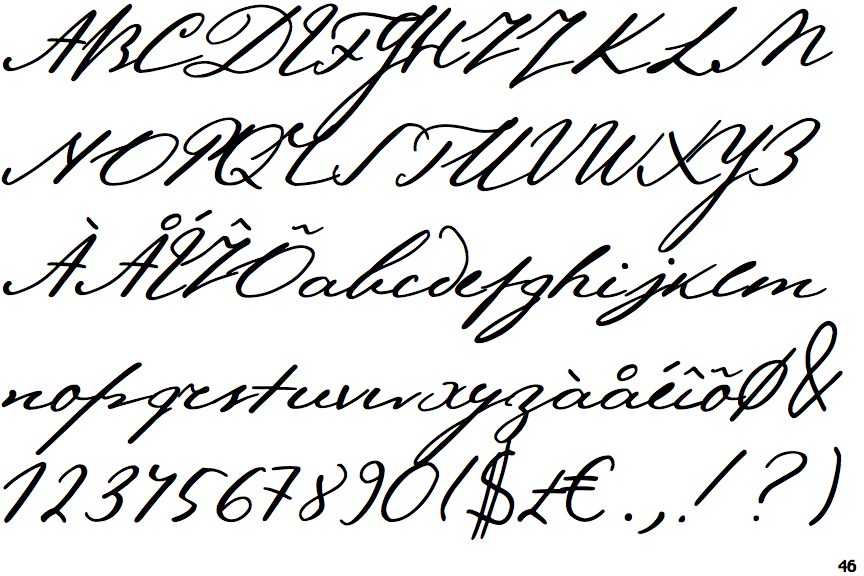 ABCDEFGHIJKLM
NOPQRSTUVWXYZ
ÀÅÉÎÕabcdefghijklm
nopqrstuvwxyzàåéîõø&
1234567890($£€.,!?)
46